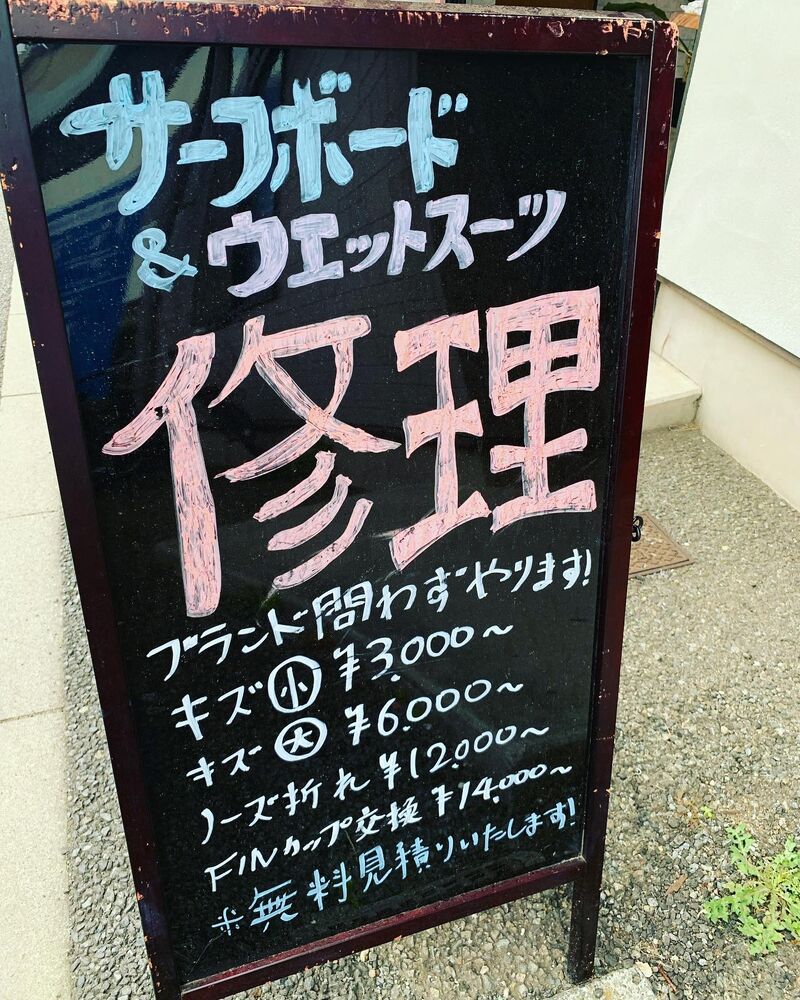 サーフボード
&ウエットスーツ
修理
ブランド問わずやります!
キズ㊙小 ¥3,000〜
キズ大 ¥6,000〜
ノーズ折れ ¥12,000〜
FINカップ交換 ¥14,000〜
※無料見積りいたします!